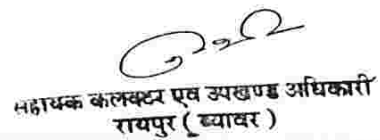 सहायक कलक्टर एव उपखण्ड अधिकारी
रायपुर ( ब्यावर )